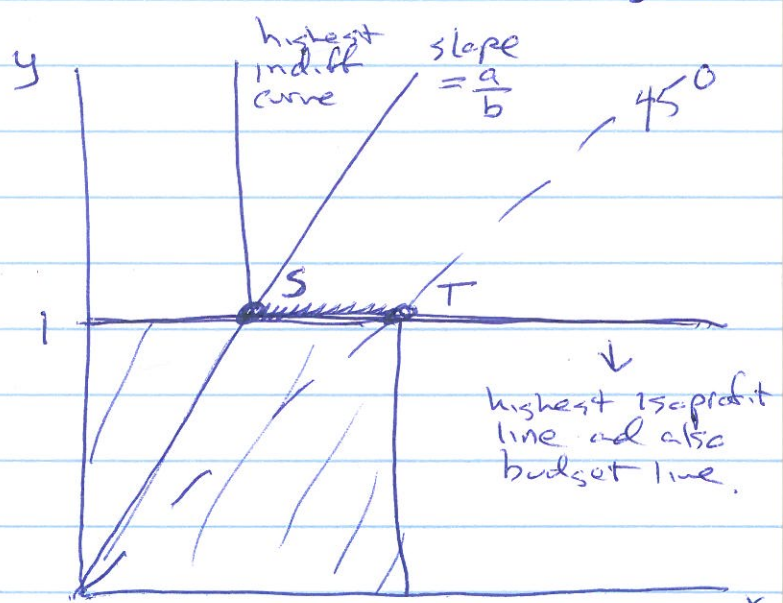 y
highest
indiff
curve
slope
= a/b
45°
S
T
1
↓
highest isoprofit
line and also
budget line.
x